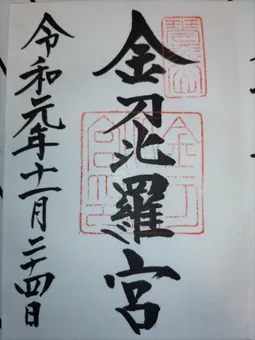 金刀比羅宮
令和元年十一月二十四日